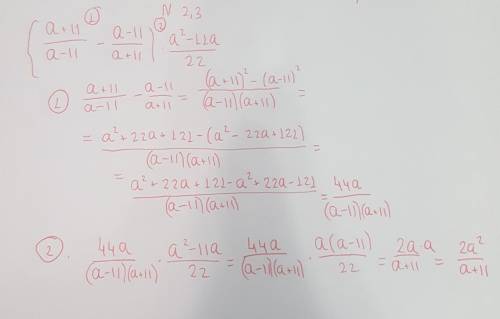 N 2,3
( (a+11)/(a-11) ① - (a-11)/(a+11) ) ② · (a²-11a)/22
① (a+11)/(a-11) - (a-11)/(a+11) = ((a+11)² - (a-11)²)/((a-11)(a+11)) =
= (a²+22a+121-(a²-22a+121))/((a-11)(a+11)) =
= (a²+22a+121-a²+22a-121)/((a-11)(a+11)) = 44a/((a-11)(a+11))
② · 44a/((a-11)(a+11)) · (a²-11a)/22 = 44a/((a-11)(a+11)) · a(a-11)/22 = 2a·a/(a+11) = 2a²/(a+11)